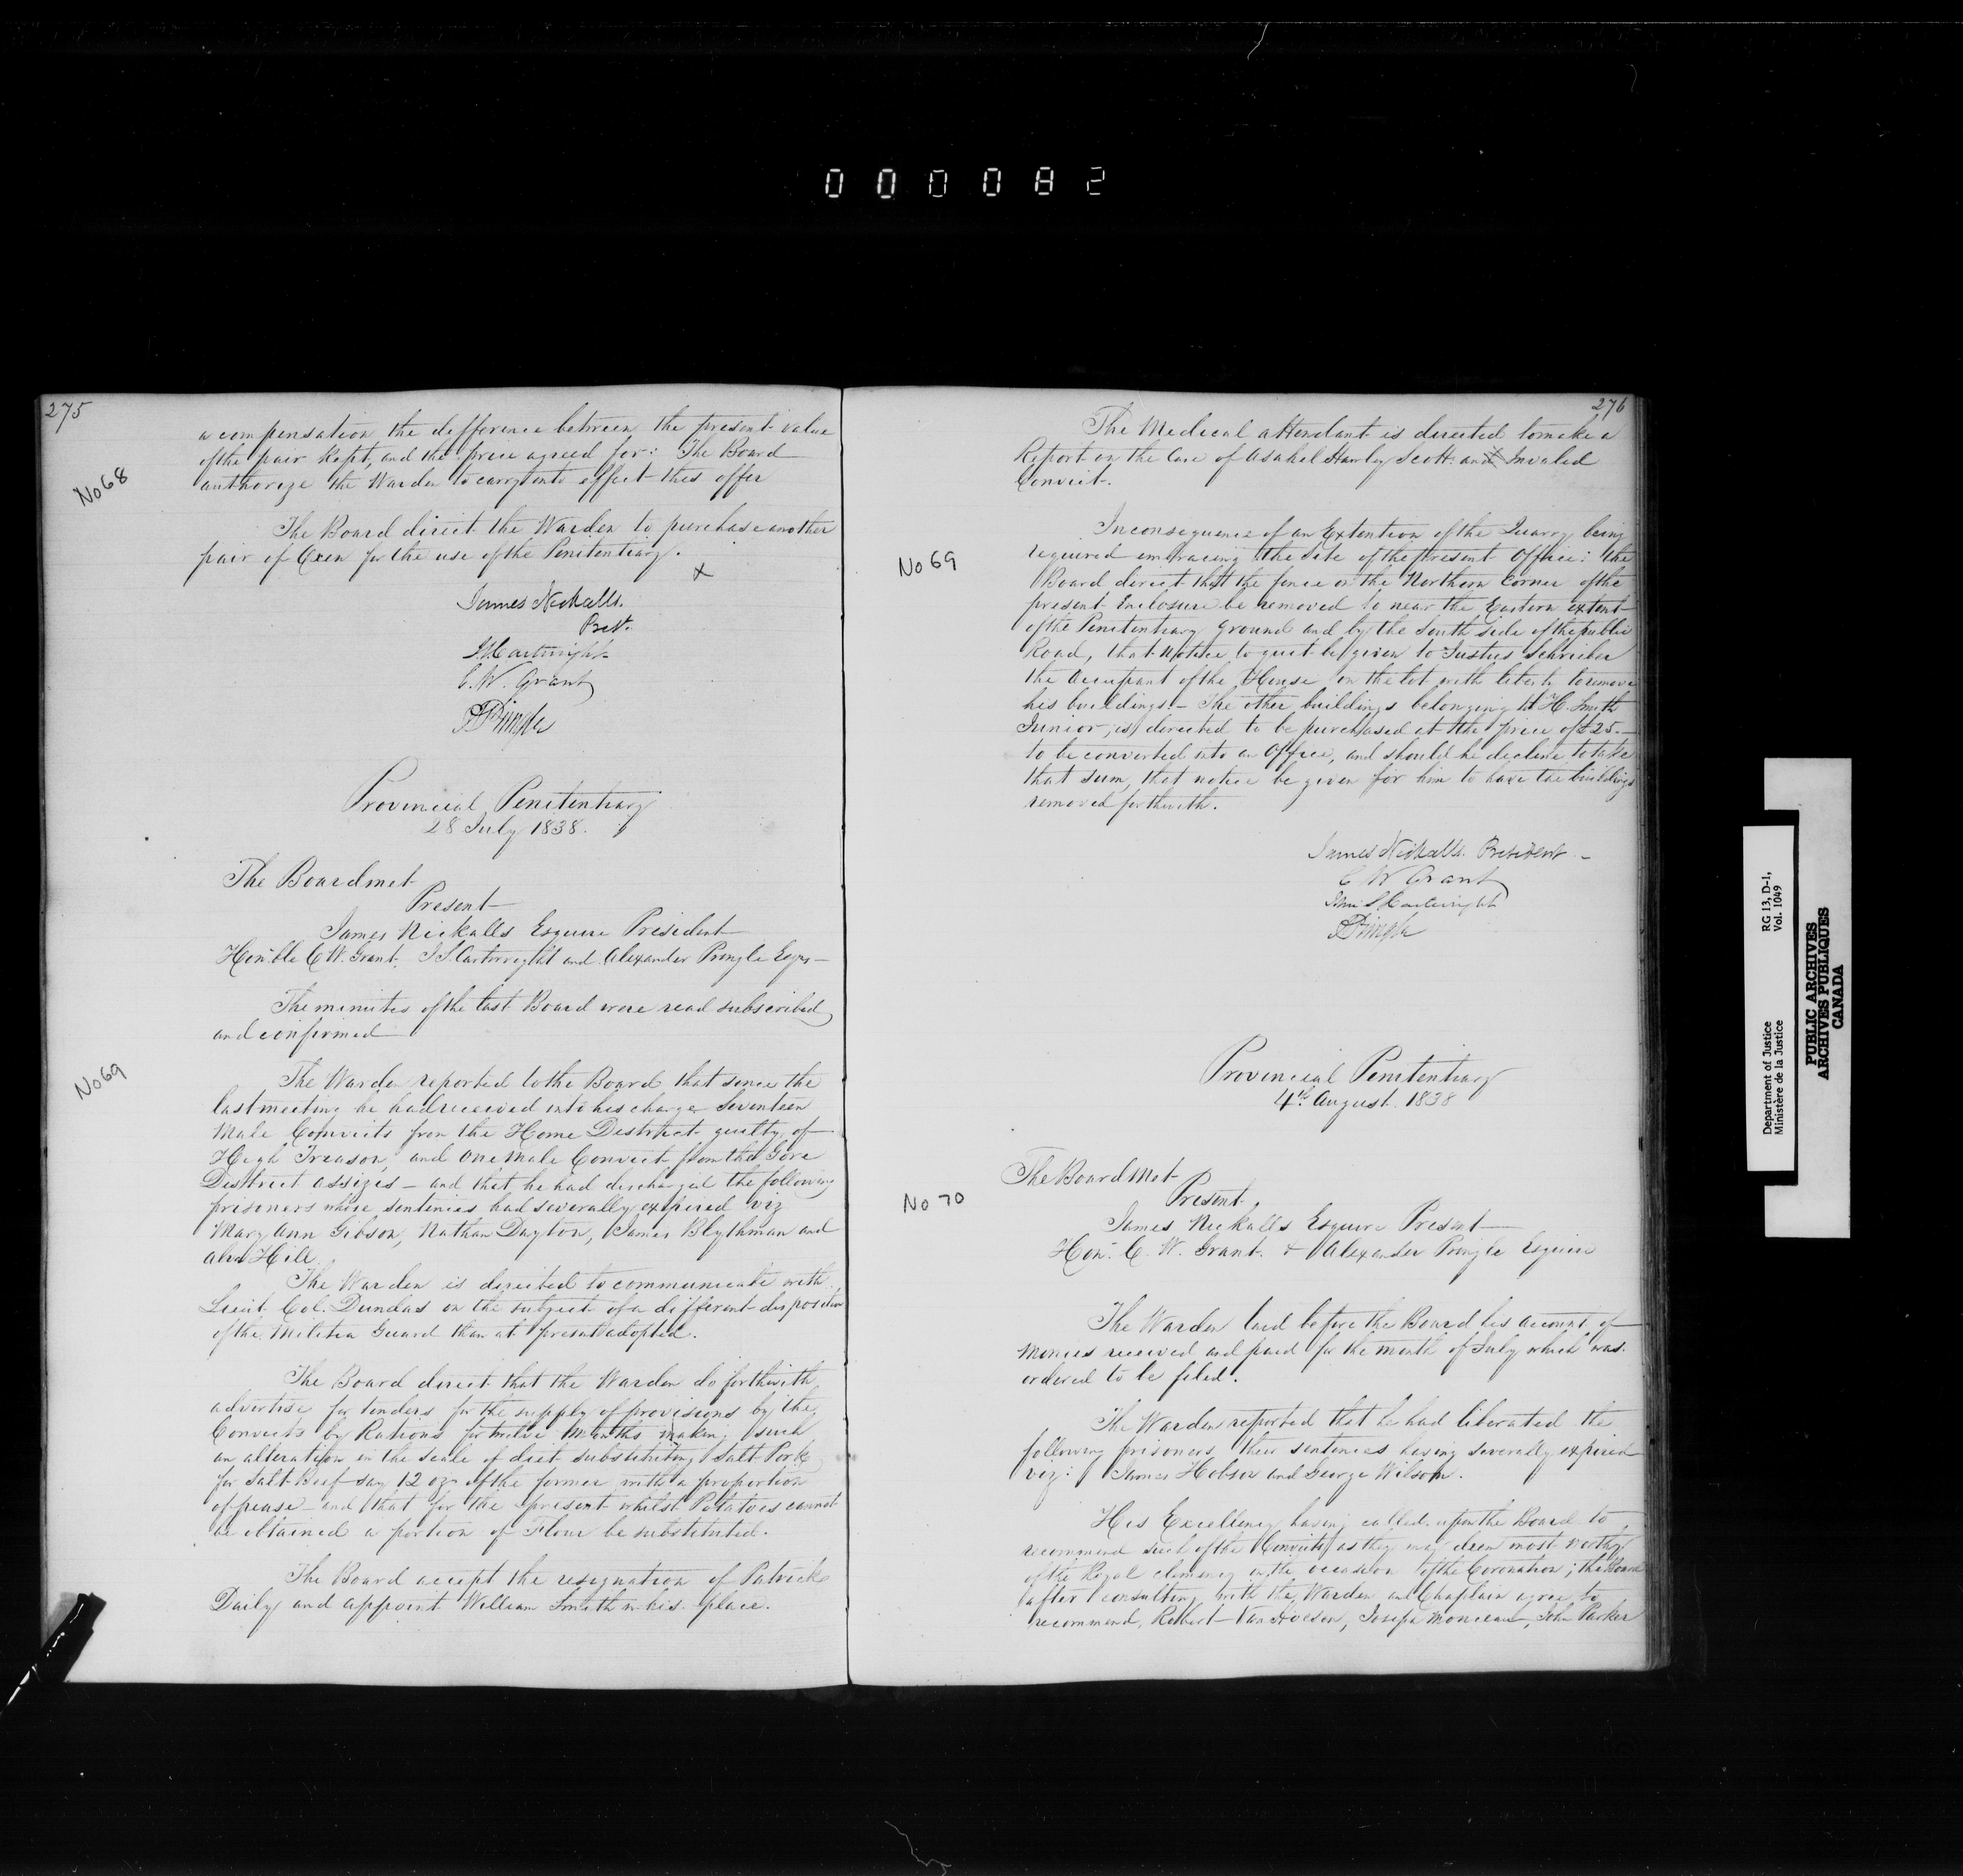 000082
275
a compensation the defference between the present value
of the pair Kept, and the price agreed for: The Board
authorize the Warden to carry into effect this offer
No 68
The Board direct the Warden to purchase another
pair of Oxen for the use of the Penitentiary.
x
James Nickalls.
Prest.
J S Cartwright
C. W. Grant
A Pringle
Provincial Penitentiary
28 July 1838.
The Board met
Present
James Nickalls Esquire President
Hon:ble C W. Grant, J S. Cartwright and Alexander Pringle Esqrs
The minutes of the last Board were read subscribed
and confirmed
No 69
The Warden reported to the Board that since the
last meeting he had received into his charge Seventeen
Male Convicts from the Home District guilty of
High Treason, and one male Convict from the Gore
District assizes – and that he had discharged the following
prisoners whose sentences had severally expired viz
Mary Ann Gibson, Nathan Dayton, James Blythman and
Hill
The Warden is directed to communicate with
Lieut. Col. Dundas on the subject of a different disposition
of the Militia Guard than at present adopted.
The Board direct that the Warden do forthwith
advertise for tenders for the supply of provisions by the
Convicts by Rations for twelve Months making such
an alteration in the scale of diet substituting Salt Pork
for Salt Beef say 12 oz of the former with a proportion
of pease – and that for the present whilst Potatoes cannot
be obtained a portion of Flour be substituted.
The Board accept the resignation of Patrick
Daily and appoint William Smith in his place.
276
The Medical attendant is directed to make a
Report on the Case of Asahel Hawley Scott an Invalid
Convict.
No 69
In consequence of an Extention of the Quarry being
required embracing the site of the present Office: the
Board direct that the fence on the Northern Corner of the
present Enclosure be removed to near the Eastern extent
of the Penitentiary ground and by the South side of the public
Road, that Notice to quit be given to Justus Schriber
the Occupant of the House on the lot with liberty to remove
his buildings. – The other buildings belonging to H. Smith
Junior, is directed to be purchased at the price of £25. –
to be converted into an Office, and should he decline to take
that sum, that notice be given for him to have the buildings
removed forthwith.
James Nickalls. President –
C W Grant
John S. Cartwright
A Pringle
Provincial Penitentiary
4th August. 1838
The Board Met
No 70
Present.
James Nickalls Esquire Present
Hon: C. W. Grant. + Alexander Pringle Esquire
The Warden laid before the Board his account of
Monies received and paid for the month of July which was
ordered to be filed.
The Warden reported that he had liberated the
following prisoners, their sentences having severally expired
viz: James Hobson and George Wilson.
His Excellency having called upon the Board to
recommend such of the Convicts as they may deem most worthy
of the Royal clemency on the occasion of the Coronation; the Board
after consulting with the Warden and Chaplain agree to
recommend, Robert Van Hoesen, Joseph Monceau, John Parker
Department of Justice RG 13, D-1,
Ministère de la Justice Vol. 1049
PUBLIC ARCHIVES
ARCHIVES PUBLIQUES
CANADA